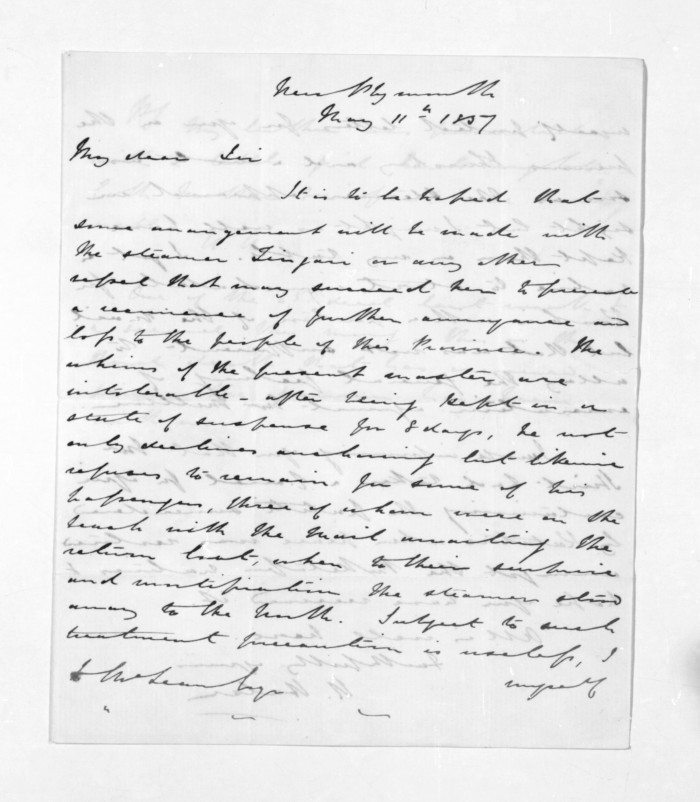 New Plymouth
May 11th 1857
My dear Sir
It is to be hoped that
some arrangement will be made with
the steamer Zingari or any other
vessel that may succeed her to prevent
a recurrence of further annoyance and
loss to the people of this Province. The
whims of the present master are
intolerable - after being kept in a
state of suspense for 8 days, he not
only declines anchoring but likewise
refuses to remain for some of his
passengers, three of whom were on the
beach with the mail awaiting the
return boat, when to their surprise
and mortification the steamer stood
away to the North. Subject to such
treatment precaution is useless, I
myself
McLean Esqr